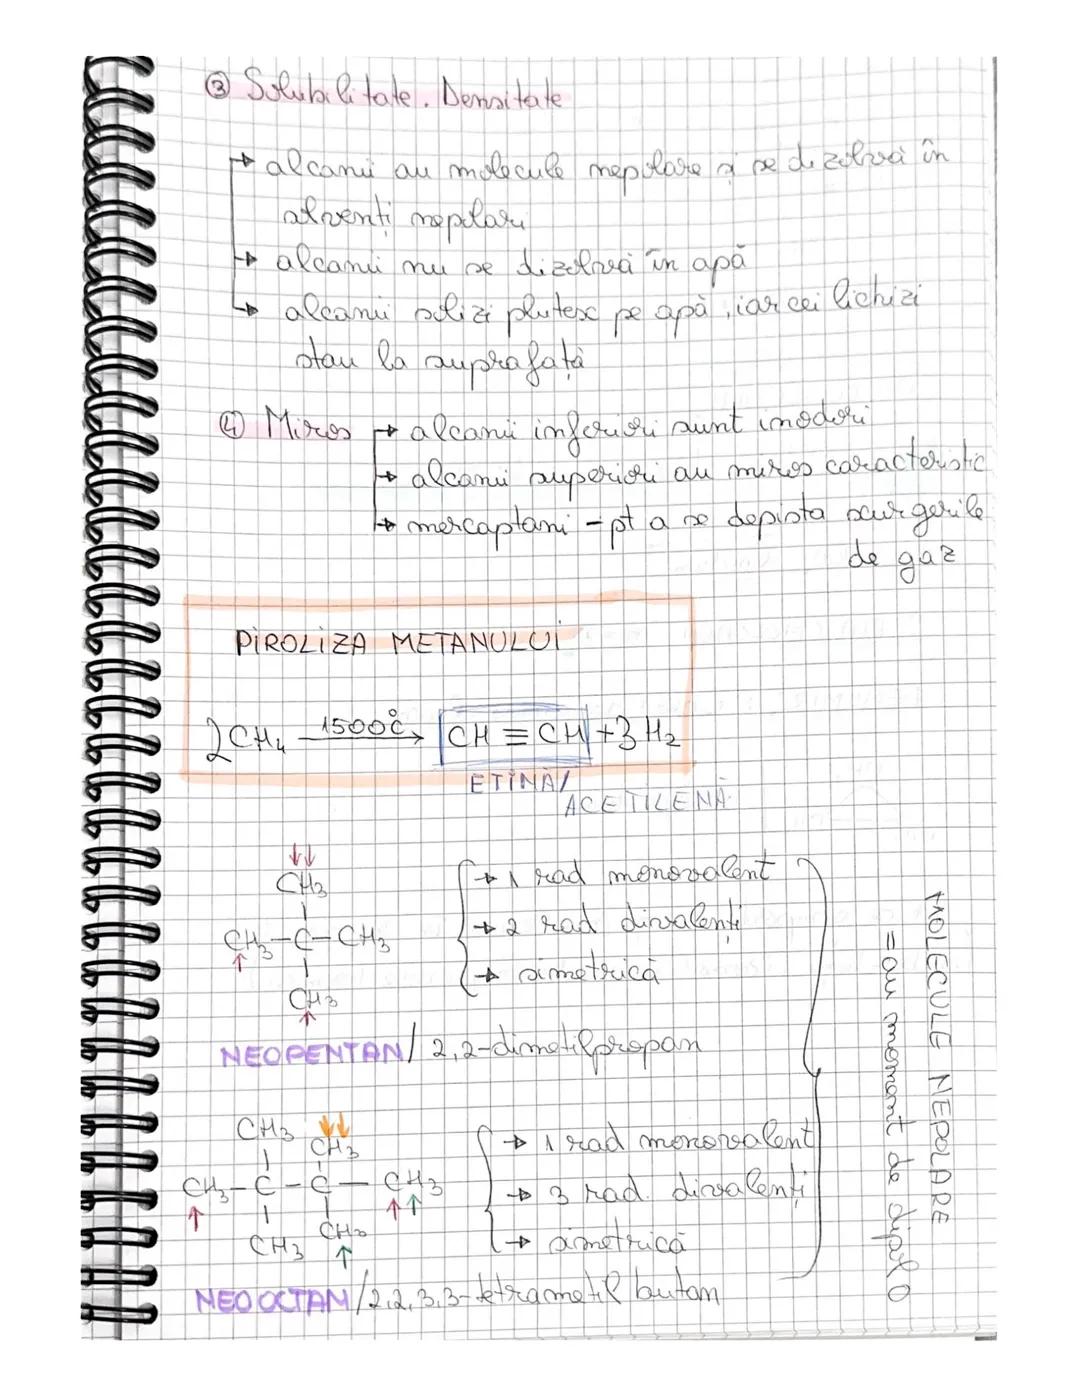 ③ Solubilitate. Densitate
→ alcanii au molecule nepolare și se dizolvă în
solvenți nepolari
→ alcanii nu se dizolvă în apă
→ alcanii solizi plutesc pe apă, iar cei lichizi
stau la suprafață
④ Miros → alcanii inferiori sunt inodori
→ alcanii superiori au miros caracteristic
→ mercaptani - pt a se depista scurgerile
de gaz
PIROLIZA METANULUI
2CH₄ 1500°C → CH ≡ CH + 3H₂
ETINĂ/
ACETILENĂ
↓↓
CH₃
|
CH₃-C-CH₃
↑
|
CH₃
↑
→ 1 rad monovalent
→ 2 rad divalenți
→ simetrică
NEOPENTAN / 2,2-dimetilpropan
CH₃ ↓↓
CH₃
| |
CH₃-C-C-CH₃
↑ ↑↑
| |
CH₃ CH₃
↑
→ 1 rad monovalent
→ 3 rad. divalenți
→ simetrică
NEOOCTAN / 2,2,3,3-tetrametil butan
MOLECULE NEPOLARE
= au moment de dipol 0